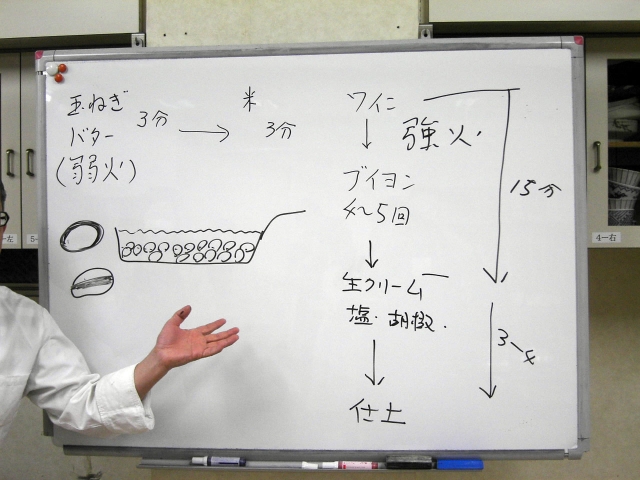 玉ねぎ
バター
(弱火)
3分
→
米
3分
ワイン
強火
ブイヨン
4〜5回
生クリーム
塩・胡椒.
仕土
15分
3〜4
4-右